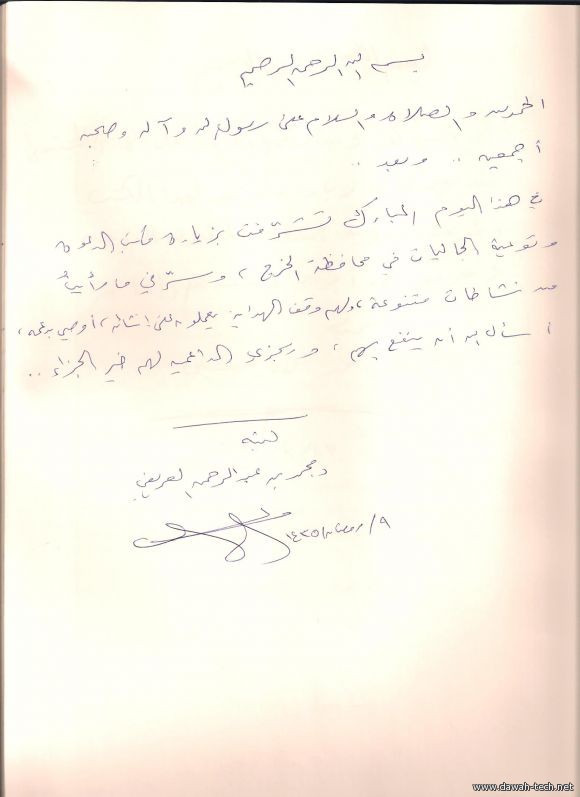 بسم الله الرحمن الرحيم
الحمد لله والصلاة والسلام على رسول الله وآله وصحبه
أجمعين .. وبعد ..
في هذا اليوم المبارك تشرّفت بزيارة مكتب الدعوة
وتوعية الجاليات في محافظة الخرج ، وسرّني ما رأيتُ
من نشاطات متنوعة ، ولهم وقف الهداية يعملون على إنشائه ، أوصي بدعمه ،
أسأل الله أن ينفع بهم ، ويجزي الداعمين لهم خير الجزاء ..
كتبه
د محمد بن عبدالرحمن العريفي
٩/ رمضان ١٤٣٥
www.dawah-tech.net